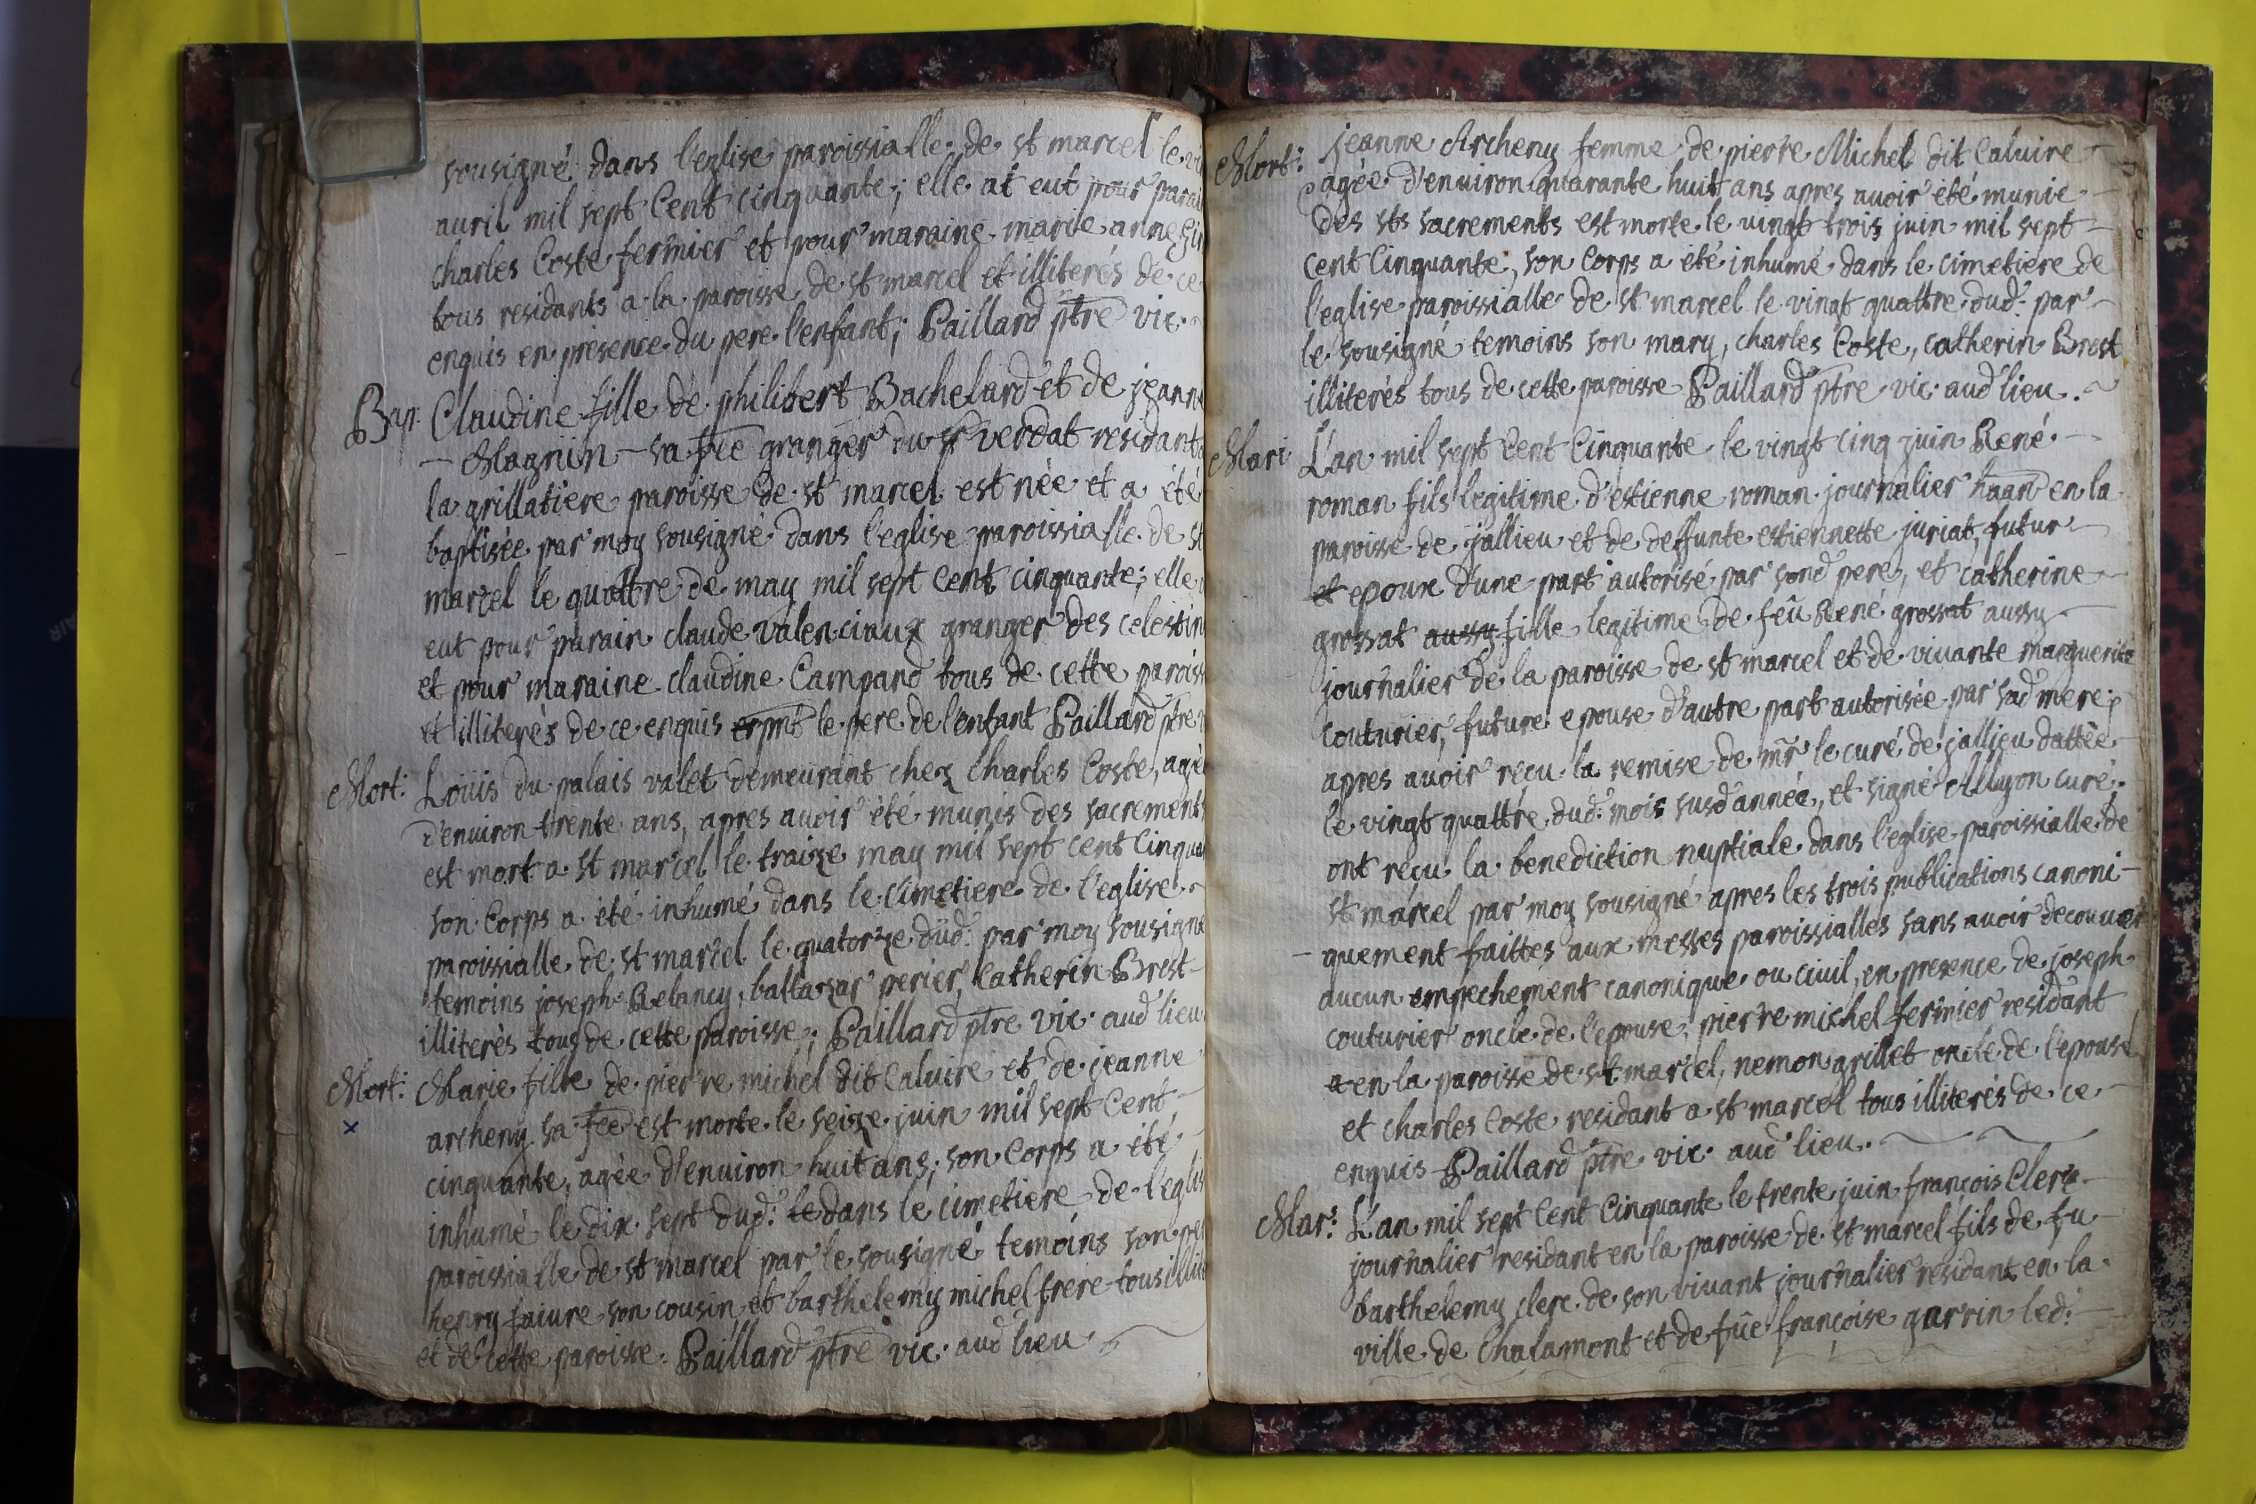 sousigné dans l'eglise paroissialle de st marcel le
auril mil sept Cent cinquante; elle at eut pour parai
charles Coste fermier et pour maraine marie anne
tous residants a la paroisse de st marcel et illiterés de ce
enquis en présence du pere l'enfant; Paillard ptre vic.
Bap. Claudine fille de philibert Bachelard et de jeanne
Magnin sa fée granger du sr verdat residant
la grillatiere paroisse de st marcel est née et a été
baptisée par moy sousigné dans l'eglise paroissialle de st
marcel le quattre de may mil sept Cent cinquante; elle
eut pour parain claude valenciaux granger des celestin
et pour maraine claudine Campand tous de cette paroiss
et illiterés de ce enquis le pere de l'enfant Paillard ptre
Mort: Louis du palais valet demeurant chez Charles Coste, agé
d'enuiron trente ans, apres auoir été munis des sacrements
est mort a st marcel le traize may mil sept cent Cinqua
son Corps a été inhumé dans le Cimetiere de l'eglise
paroissialle de st marcel le quatorze dud: par moy sousigné
temoins joseph Relancy, baltazar perier, Catherin Brest
illiterés tous de cette paroisse; Paillard ptre vic. aud lieu
Mort: Marie fille de pierre michel dit Caluire et de jeanne
archeny sa fée est morte le seize juin mil sept Cent
cinquante, agée d'enuiron huit ans; son Corps a été
inhumé le dix sept dud: le dans le cimetiere de l'eglis
paroissialle de st marcel par le sousigné temoins son pe
henry faiure son cousin et barthelemy michel frere tous illit
et de cette paroisse. Paillard ptre vic. aud lieu
Mort: jeanne Archeny femme de pierre Michel dit Caluire
agée d'enuiron quarante huit ans apres auoir été munie
des sts sacrements est morte le vingt trois juin mil sept
cent Cinquante, son Corps a été inhumé dans le cimetiere de
l'eglise paroissialle de st marcel le vingt quattre dud: par
le sousigné temoins son mary, charles Coste, catherin Brest
illiterés tous de cette paroisse Paillard ptre vic. aud lieu.
Mari L'an mil sept Cent Cinquante le vingt cinq juin René
roman fils legitime d'estienne roman journalier en la
paroisse de jallieu et de deffunte estiennette juriat, futur
et epoux d'une part autorisé par sond pere, et catherine
grossat aussy fille legitime de feû René grossat aussy
journalier de la paroisse de st marcel et de viuante marguerite
Couturier, future epouse d'autre part autorisée par sad mere;
apres auoir reçu la remise de mr le curé de jallieu dattée
le vingt quattre dud: mois susd année, et signé Allyon curé;
ont reçu la benediction nuptiale dans l'eglise paroissialle de
st marcel par moy sousigné apres les trois publications canoni-
quement faittes aux messes paroissialles sans auoir decouuert
aucun empechement canonique ou ciuil, en presence de joseph
couturier oncle de l'epouse, pierre michel fermier residant
a en la paroisse de st marcel, nemon grillet oncle de l'epouse
et charles Coste residant a st marcel tous illiterés de ce
enquis Paillard ptre vic. aud lieu.
Mar: L'an mil sept Cent Cinquante le trente juin françois Clerc
journalier residant en la paroisse de st marcel fils de fu
barthelemy clerc de son viuant journalier residant en la
ville de Chalamont et de fûe françoise garrin led: